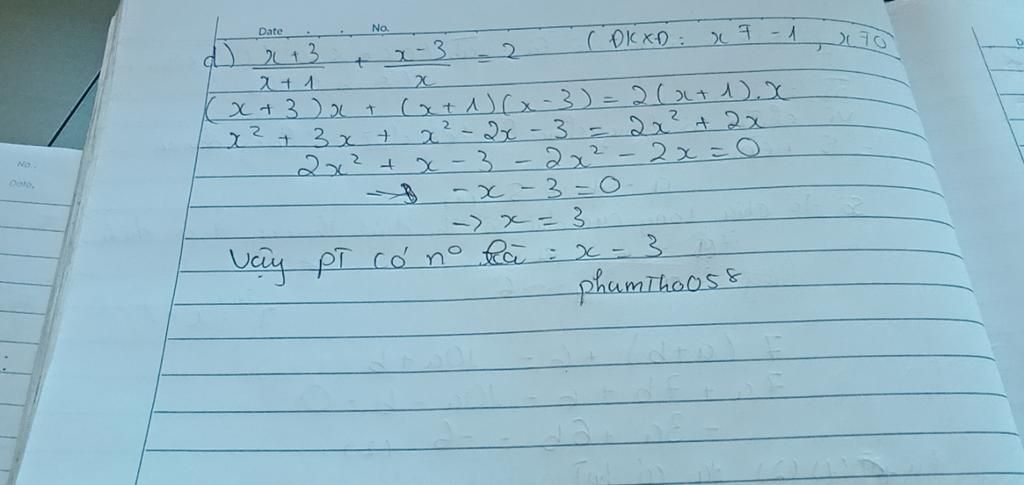 Date No.
d) \frac{x+3}{x+1} + \frac{x-3}{x} = 2 ( ĐKXĐ: x ≠ -1, x ≠ 0
(x+3)x + (x+1)(x-3) = 2(x+1).x
x² + 3x + x² - 2x - 3 = 2x² + 2x
2x² + x - 3 - 2x² - 2x = 0
→ -x - 3 = 0
→ x = 3
Vậy PT có n° là : x = 3
phamTh0058
No.
Date.